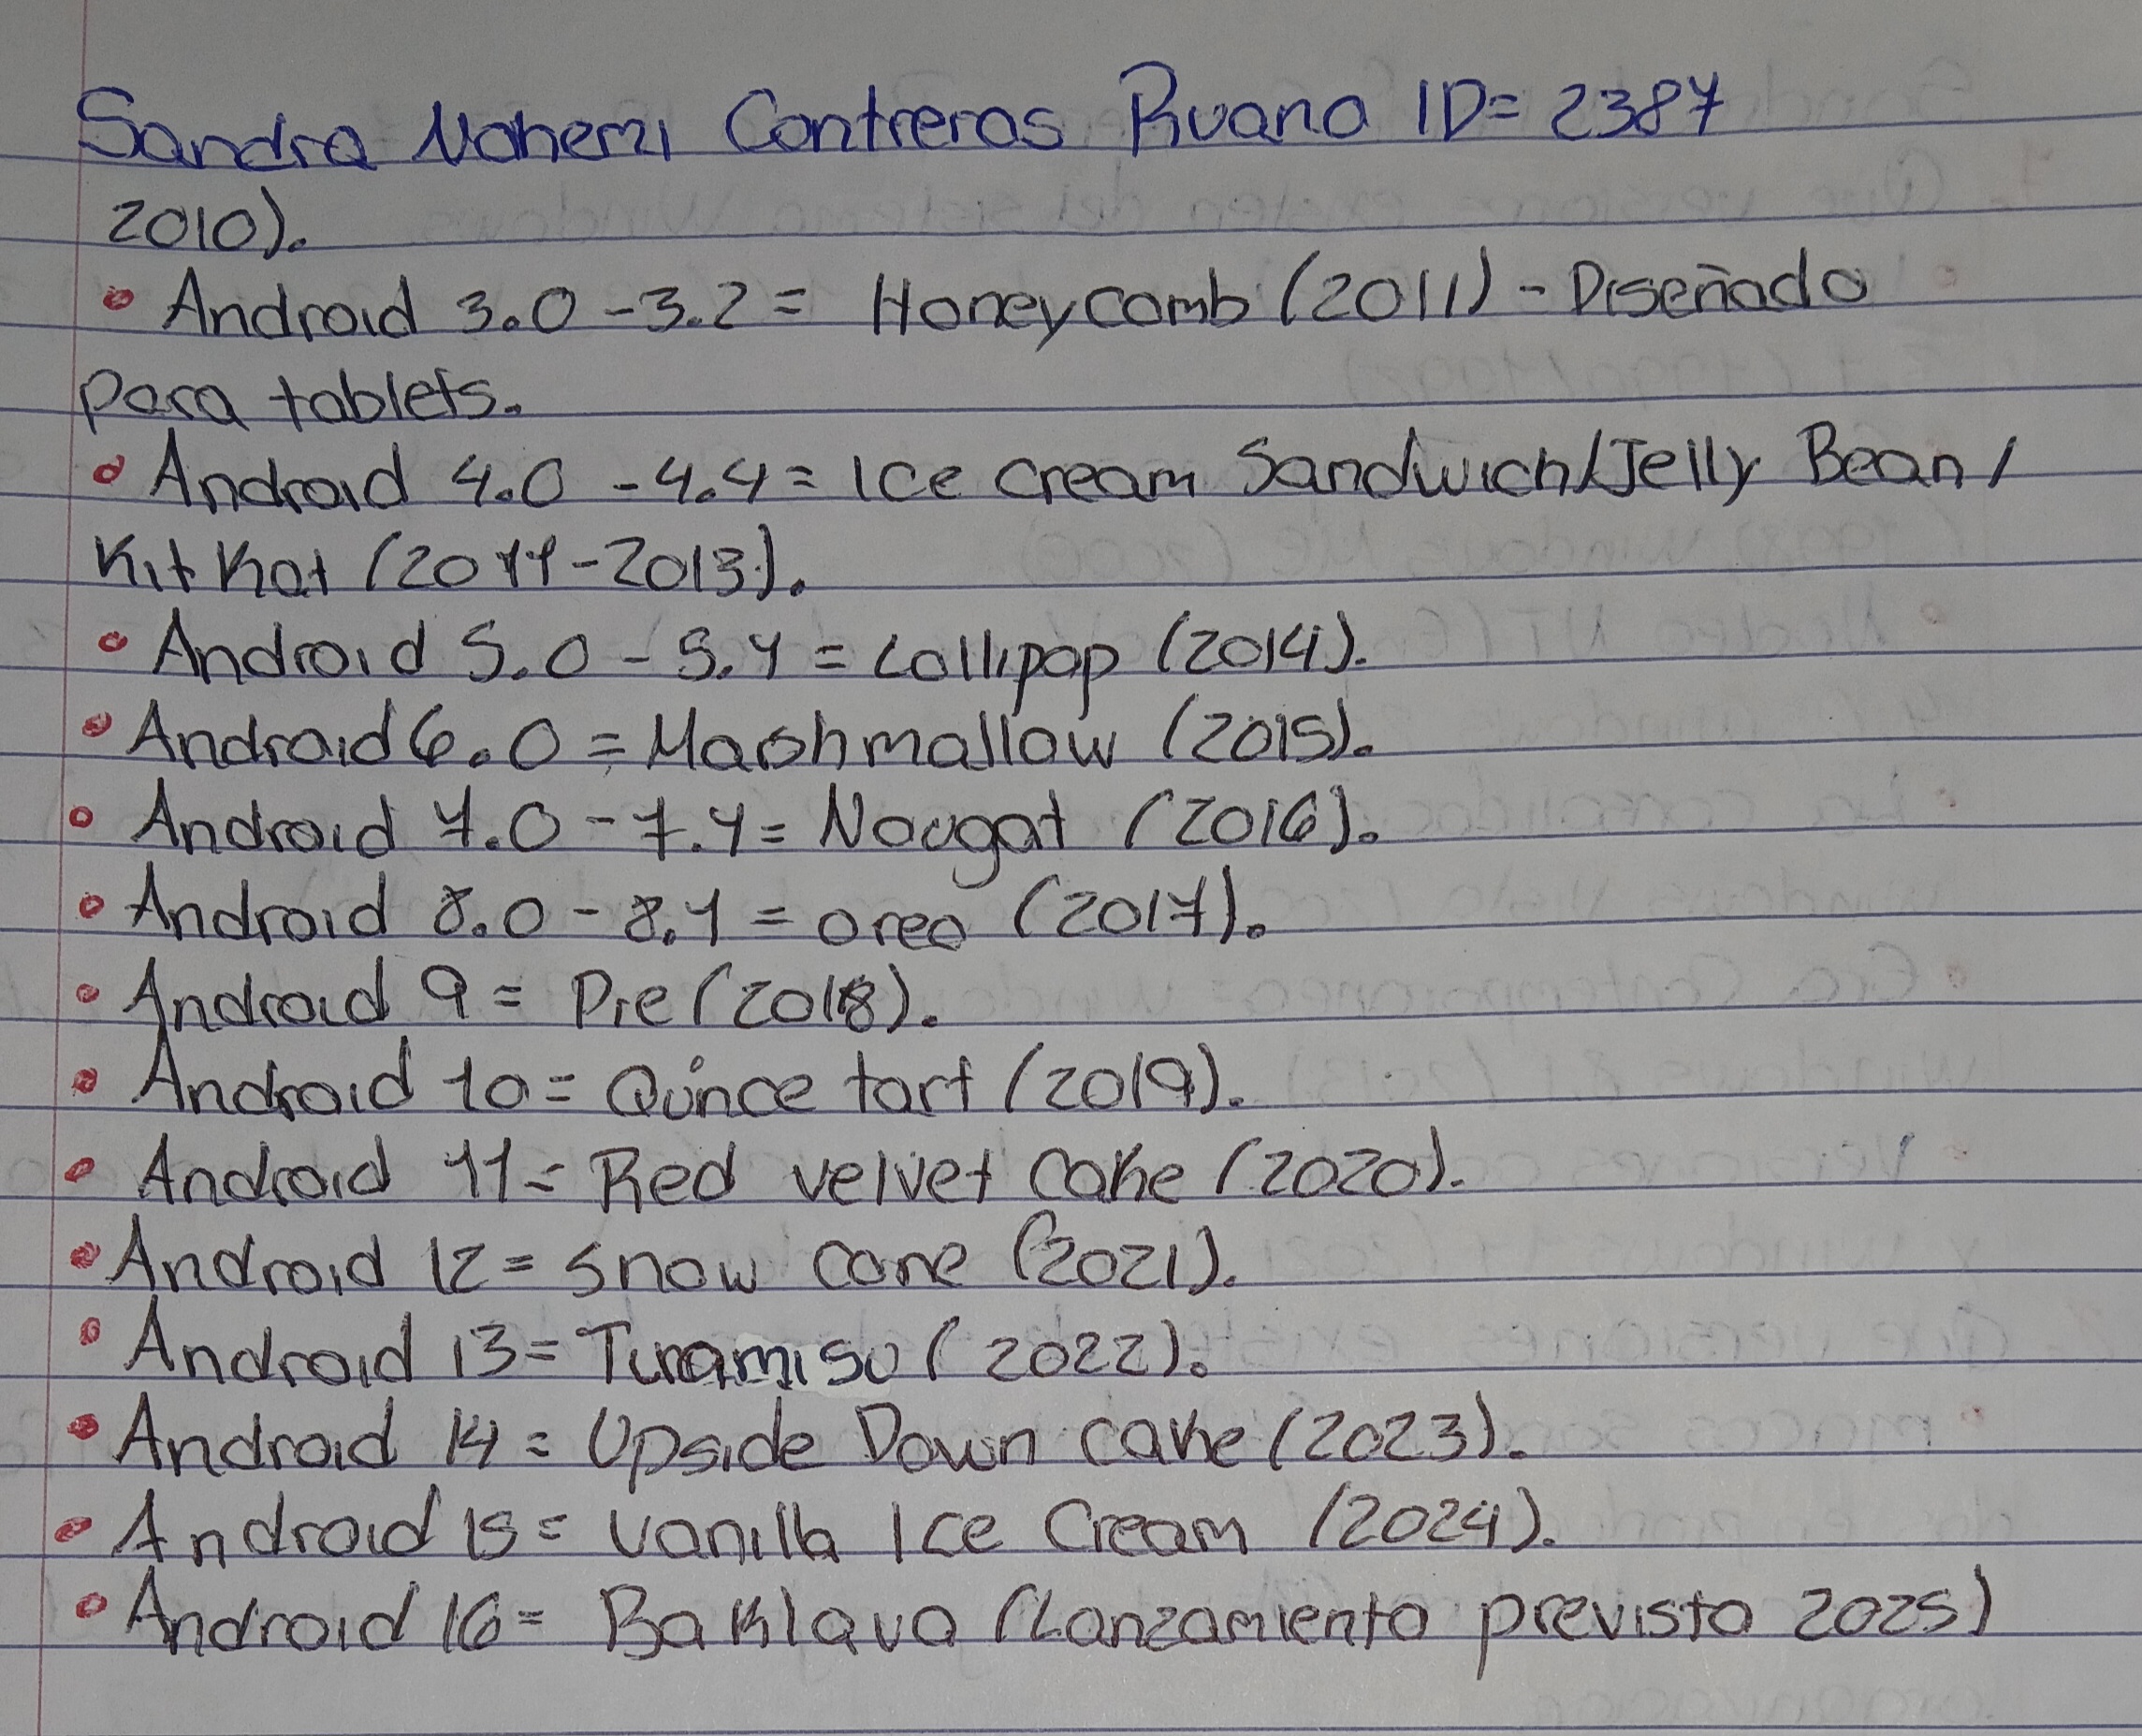 Sandra Nohemi Contreras Ruano ID= 2387
2010).
• Android 3.0 -3.2 = Honeycomb (2011) - Diseñado
para tablets.
• Android 4.0 -4.4 = Ice cream Sandwich/Jelly Bean/
Kit Kat (2011-2013).
• Android 5.0 - 5.1 = Lollipop (2014).
• Android 6.0 = Mashmallow (2015).
• Android 7.0 - 7.1 = Nougat (2016).
• Android 8.0 - 8.1 = oreo (2017).
• Android 9 = Pie (2018).
• Android 10 = Quince tart (2019).
• Android 11 = Red velvet Cake (2020).
• Android 12 = Snow cone (2021).
• Android 13 = Tiramisu (2022).
• Android 14 = Upside Down cake (2023).
• Android 15 = Vanilla Ice Cream (2024).
• Android 16 = Baklava (Lanzamiento previsto 2025)